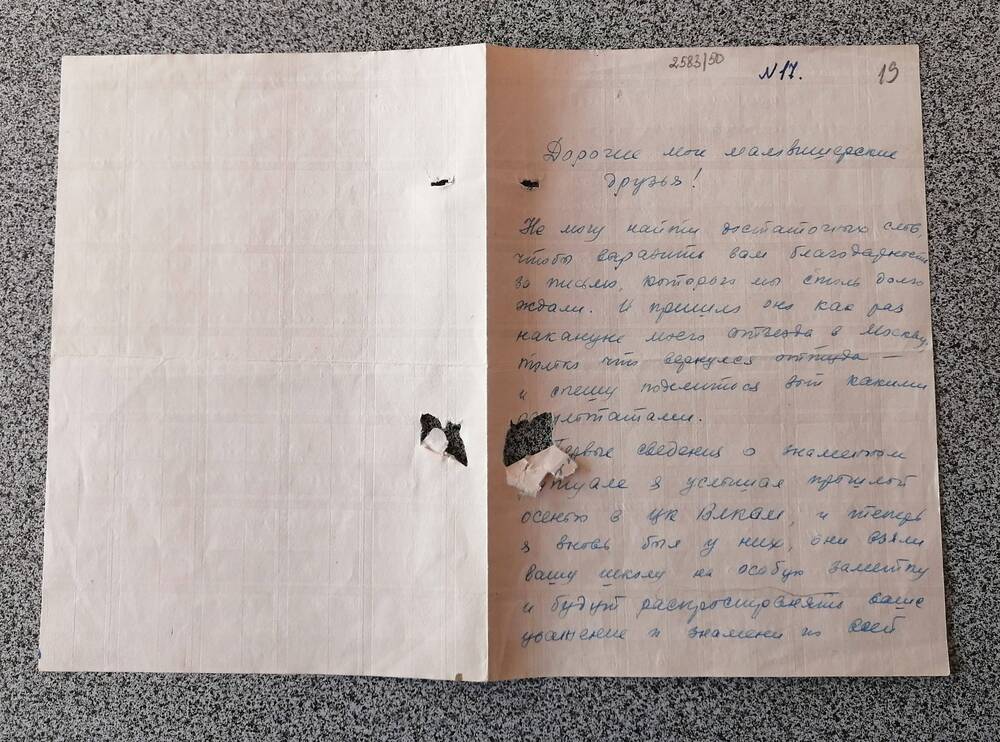 2583/50
N 17.
19
Дорогие мои маловишерские
друзья!
Не могу найти достаточных слов,
чтобы выразить вам благодарность
за письмо, которого мы столь долго
ждали. И пришло оно как раз
накануне моего отъезда в Москву,
только что вернулся оттуда —
и спешу поделиться вот какими
результатами.
Первые сведения о знаменном
ритуале я услышал прошлой
осенью в ЦК ВЛКСМ, и теперь
я вновь был у них, они взяли
вашу школу на особую заметку
и будут распространять ваше
уважение к знамени по всей